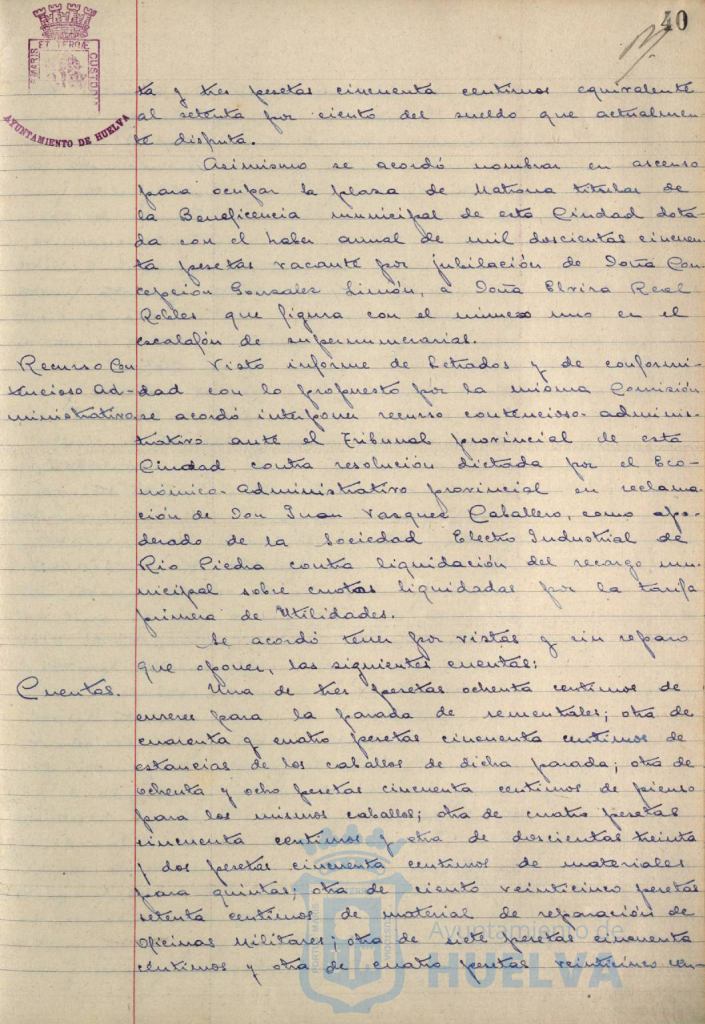 40
MARIS ET TERRAE CUSTODIA
AYUNTAMIENTO DE HUELVA
ta y tres pesetas cincuenta centimos equivalente
al setenta por ciento del sueldo que actualmen-
te disputa.
Asimismo se acordó nombrar en ascenso
para ocupar la plaza de Matrona titular de
la Beneficencia municipal de esta Ciudad dota-
da con el haber anual de mil doscientas cincuen-
ta pesetas vacante por jubilación de Doña Con-
cepción Gonzalez Limón, a Doña Elvira Real
Robles que figura con el número uno en el
escalafón de supernumerarias.
Recurso Con
tencioso Ad-
ministrativo
Visto informe de Letrados y de conformi-
dad con lo propuesto por la misma Comisión
se acordó interponer recurso contencioso-adminis-
trativo ante el Tribunal provincial de esta
Ciudad contra resolución dictada por el Eco-
nómico-Administrativo provincial en reclama-
ción de Don Juan Vazquez Caballero, como apo-
derado de la Sociedad Electro Industrial de
Rio Piedra contra liquidación del recargo mu-
nicipal sobre cuotas liquidadas por la tarifa
primera de Utilidades.
Se acordó tener por vistas y sin reparo
que oponer, las siguientes cuentas:
Cuentas.
Una de tres pesetas ochenta centimos de
enseres para la parada de sementales; otra de
cuarenta y cuatro pesetas cincuenta centimos de
estancias de los caballos de dicha parada; otra de
ochenta y ocho pesetas cincuenta centimos de pienso
para los mismos caballos; otra de cuatro pesetas
cincuenta centimos y otra de doscientas treinta
y dos pesetas cincuenta centimos de materiales
para quintas; otra de ciento veinticinco pesetas
setenta centimos de material de reparación de
Oficinas Militares; otra de siete pesetas cincuenta
centimos y otra de cuatro pesetas veinticinco cen-
Ayuntamiento de
HUELVA